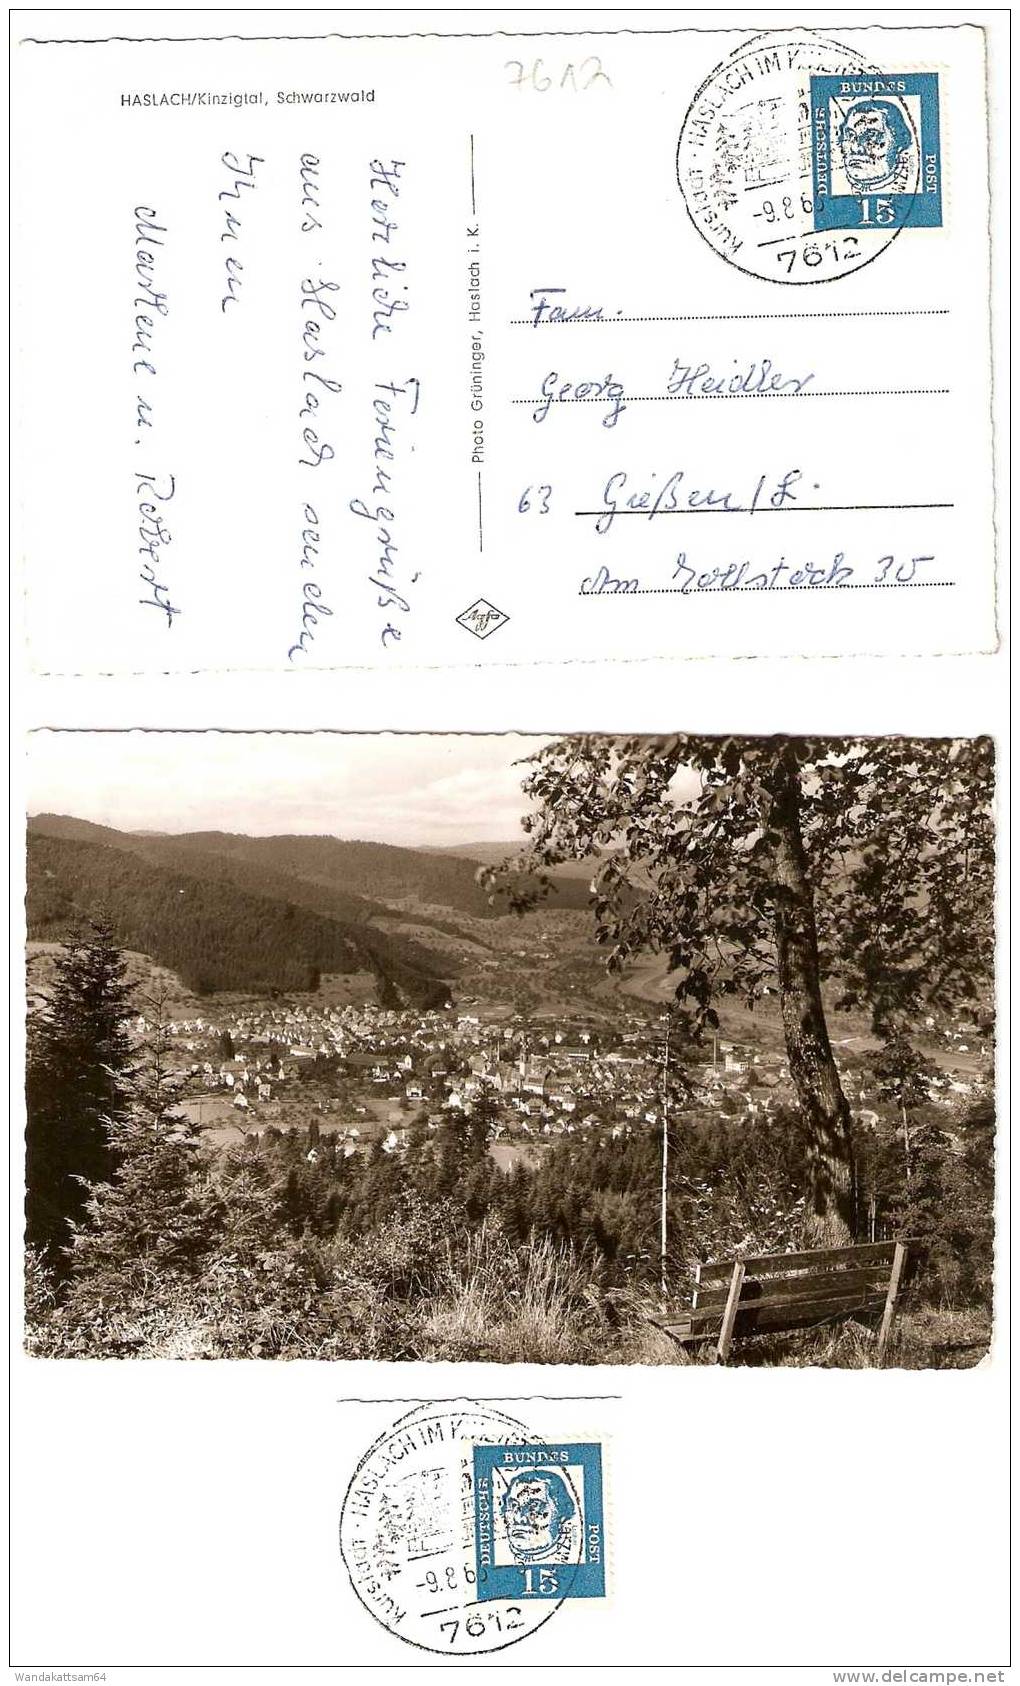 7612
HASLACH/Kinzigtal, Schwarzwald
Herzliche Feriengrüße
aus Haslach senden
Ihnen
Marlene u. Robert
Photo Grüninger, Haslach i. K.
Agfa
HASLACH IM
DEUTSCHE BUNDES POST
15
-9.8.6
7612
Fam.
Georg Heidler
63 Gießen/L.
Am Zollstock 30
HASLACH IM
DEUTSCHE BUNDES POST
15
-9.8.6
7612
Wandakattsam64
delcampe.net